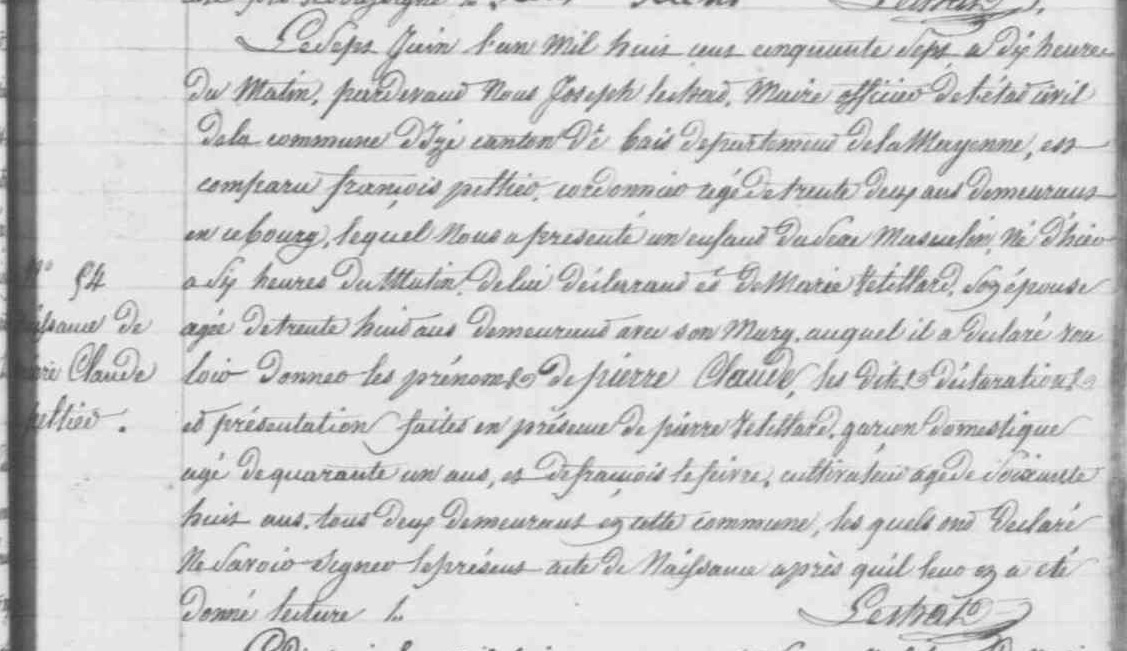 Le sept Juin l'an Mil huit cent cinquante Sept, a dix heures
du Matin, pardevant Nous Joseph Leshad, Maire officier de l'état civil
de la commune D'Izé canton De bais departement de la Mayenne, est
comparu françois peltier, cordonnier agé de trente deux ans demeurant
en ce bourg, lequel Nous a présenté un enfant du Sexe Masculin, Né d'hier
N° 54
a Six heures du Matin, de lui déclarant et de Marie Vetillard, Son épouse
Naissance de
agée de trente huit ans demeurant avec son Mary, auquel il a declaré vou
pierre Claude
loir donner les prénoms de pierre Claude, les dites déclarations
peltier.
et présentation faites en présence de pierre Vetillard, garçon domestique
agé de quarante un ans, et de françois lefeivre, cultivateur agé de Soixante
huit ans, tous deux demeurant en cette commune, les quels ont declaré
Ne Savoir Signer le présent acte de Naissance après quil leur en a eté
donné lecture /.